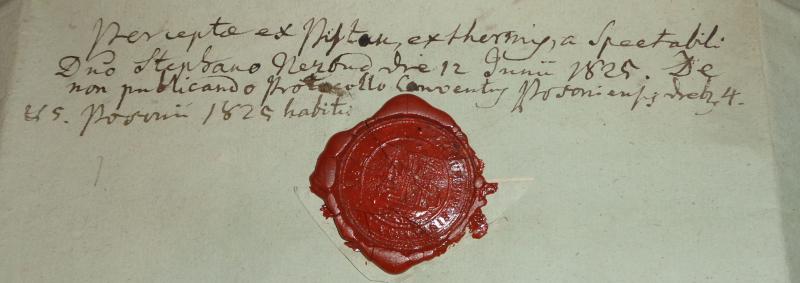 Perceptae ex Pistan, ex thermis, a Spectabili
Dno Stephano Nezbud die 12 Junii 1825. De
non publicando Protocollo Conventus Posoniensis dieb. 4.
& 5. Posonii 1825 habiti